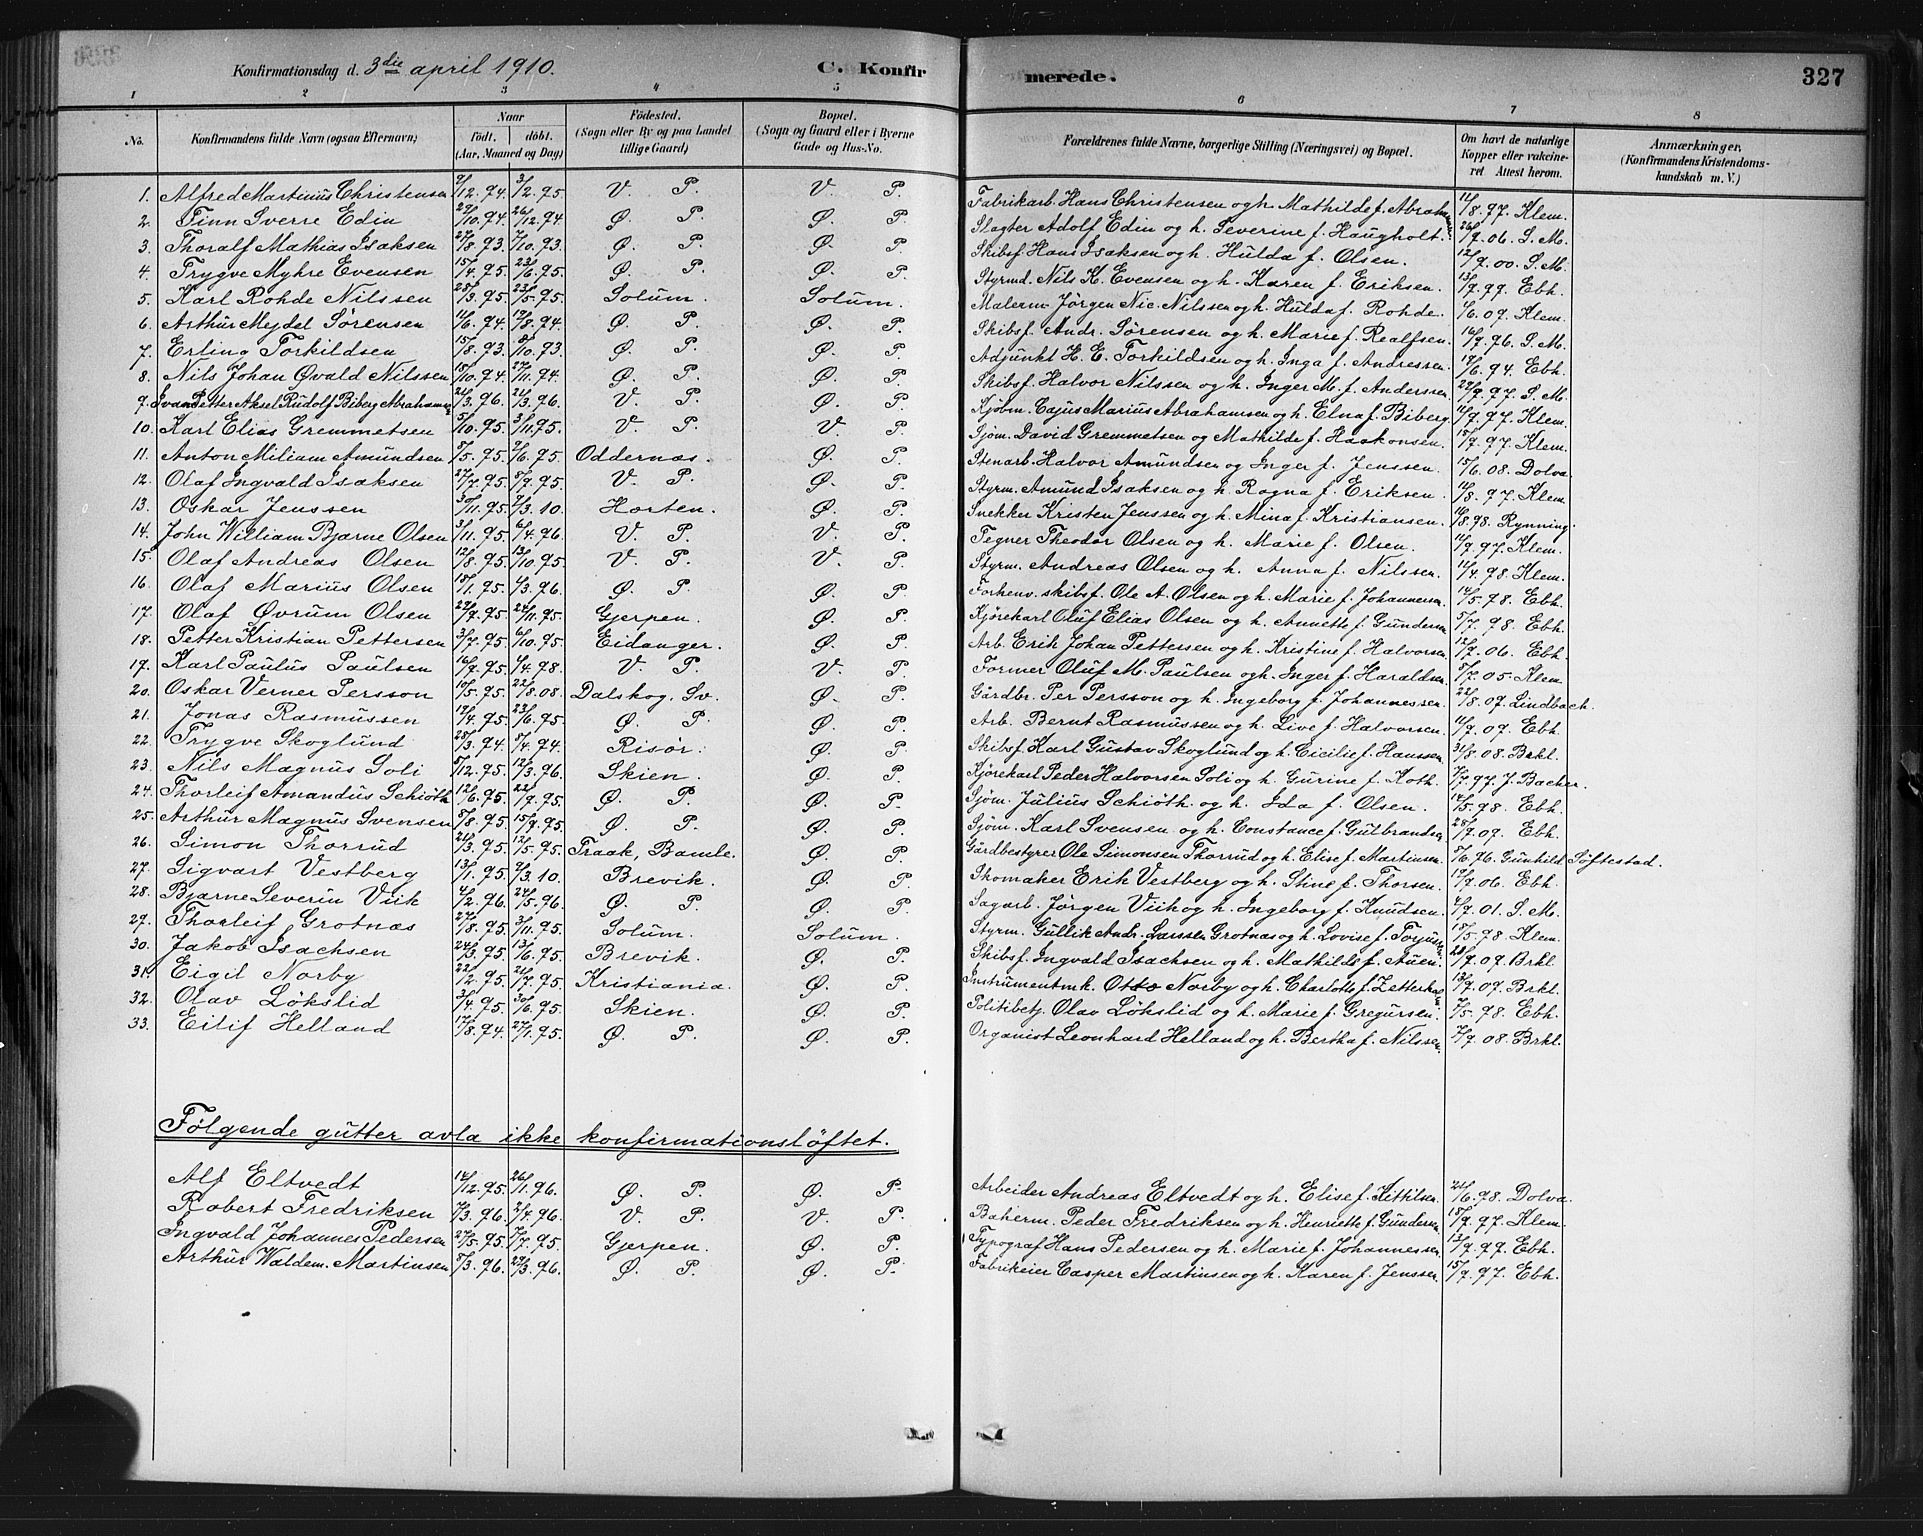 Konfirmationsdag d. 3die april 1910. C. Konfirmerede. 327
1 2 3 4 5 6 7 8
No. Konfirmandens fulde Navn (ogsaa Efternavn) Naar født. døbt. (Aar, Maaned og Dag) Fødested. (Sogn eller By og paa Landet tillige Gaard) Bopæl. (Sogn og Gaard eller i Byerne Gade og Hus-No. Forældrenes fulde Navne, borgerlige Stilling (Næringsvei) og Bopæl. Om havt de naturlige Kopper eller vakcineret Attest herom. Anmærkninger, (Konfirmandens Kristendomskundskab m. V.)
1. Alfred Martinius Christensen 9/12.94. 3/2.95. V. P. V. P. Fabrikarb. Hans Christensen og h. Mathilde f. 11/8.97. Klem.
2. Finn Sverre Edin 29/10.94. 26/12.94 Ø. P. Ø. P. Slagter Adolf Edin og h. Severine f. Haugholt. 26/9.06. S. M.
3. Thoralf Mathias Isaksen 27/8.93. 7/10.93. Ø. P. Ø. P. Skibsf. Hans Isaksen og h. Hulda f. Olsen. 12/9.00. S. M.
4. Trygve Myhre Evensen 15/4.95. 23/6.95. Ø. P. Ø. P. Styrmd. Nils K. Evensen og h. Karen f. Eriksen. 13/9.99. Ebh.
5. Karl Rohde Nilssen 28/3.95. 23/5.95. Solum. Solum. Malerm. Jørgen Nic. Nilssen og h. Hulda f. Rohde. 4/6.09. Klem.
6. Arthur Mejdel Sørensen 11/6.94. 19/8.94. Ø. P. Ø. P. Skibsf. Andr. Sørensen og h. Marie f. Realfsen. 16/9.96. S. M.
7. Erling Torkildsen 15/8.93. 8/10.93. Ø. P. Ø. P. Adjunkt H. E. Torkildsen og h. Inga f. Andressen. 19/6.94. Ebh.
8. Nils Johan Øvald Nilssen 15/10.94. 27/11.94. Ø. P. Ø. P. Skibsf. Halvor Nilssen og h. Inger M. f. Anderssen. 22/9.97. S. M.
9. Ivan Petter Aksel Rudolf Biberg Abrahamsen 24/3.96. 24/3.96. V. P. Ø. P. Kjøbm. Cajus Marius Abrahamsen og h. Elna f. Biberg 14/9.97. Klem.
10. Karl Elias Gremmetsen 5/10.95. 3/11.95. V. P. V. P. Sjøm. David Gremmetsen og Mathilde f. Haakonsen. 18/9.97. Klem.
11. Anton Miliam Amundsen 8/5.95. 9/6.95. Oddernæs. Ø. P. Stenarb. Halvor Amundsen og Inger f. Jenssen. 15/6.08. Dolva
12. Olaf Ingvald Isaksen 27/7.95. 8/9.95. V. P. Ø. P. Styrm. Amund Isaksen og h. Ragna f. Eriksen. 11/8.97. Klem
13. Oskar Jenssen 30/11.95. 9/3.10. Horten. Ø. P. Snekker Kristen Jenssen og h. Mina f. Kristiansen. 16/8.98. Rynning.
14. John William Bjarne Olsen 3/11.95. 6/4.96. V. P. V. P. Tegner Theodor Olsen og h. Marie f. Olsen. 14/9.97. Klem.
15. Olaf Andreas Olsen 12/8.95. 13/10.95. V. P. V. P. Styrm. Andreas Olsen og h. Anna f. Nilssen. 12/4.98. Klem.
16. Olaf Marius Olsen 18/1.95. 4/3.96. Ø. P. Ø. P. Forhenv. skibsf. Ole A. Olsen og h. Marie f. Johannessen 14/5.98. Ebh.
17. Olaf Øvrum Olsen 22/9.95. 24/11.95. Gjerpen. Ø. P. Kjørekarl Oluf Elias Olsen og h. Annette f. Gundersen 5/7.98. Ebh.
18. Petter Kristian Pettersen 3/7.95. 6/10.95. Eidanger. Ø. P. Arb. Erik Johan Pettersen og h. Kristine f. Halvorsen 12/9.06. Ebh.
19. Karl Paulus Paulsen 16/9.95. 4/4.98. V. P. V. P. Former Oluf M. Paulsen og h. Inger f. Haraldsen 8/7.05. Klem
20. Oskar Verner Persson 10/5.95. 22/8.08. Dalskog. Sv. Ø. P. Gårdbr. Per Persson og h. Ingeborg f. Johannessen. 22/8.07. Lindbach.
21. Jonas Rasmussen 19/4.95. 23/6.95. Ø. P. Ø. P. Arb. Bernt Rasmussen og h. Live f. Halvorsen. 11/9.07. Ebh.
22. Trygve Skoglund 28/3.94. 8/4.94. Risør. Ø. P. Skibsf. Karl Gustav Skoglund og h. Cicilie f. Hanssen 31/8.08. Brkl.
23. Nils Magnus Soli 8/12.95. 12/3.96. Skien. Ø. P. Kjørekarl Peder Halvorsen Soli og h. Gurine f. Koth. 7/7.97. J. Backer.
24. Thorleif Amandus Schiøth 12/6.95. 22/9.95. Ø. P. Ø. P. Sjøm. Julius Schiøth og h. Ida f. Olsen. 14/5.98. Ebh.
25. Arthur Magnus Svensen 8/8.95. 15/9.95. Ø. P. Ø. P. Sjøm. Karl Svensen og h. Constance f. Gulbrandsen 28/9.07. Ebh.
26. Simon Thorrud 26/3.95. 12/5.95. Traak, Bamle. Ø. P. Gårdbestyrer Ole Simonsen Thorrud og h. Elise f. Martinsen. 8/6.96. Gunhild Tøftestad.
27. Sigvart Vestberg 13/1.95. 9/3.10. Brevik. Ø. P. Skomaker Erik Vestberg og h. Stine f. Thorsen. 19/9.06. Ebh.
28. Bjarne Severin Viik 4/2.96. 24/5.96. Ø. P. Ø. P. Sagarb. Jørgen Viik og h. Ingeborg f. Knudsen. 4/9.01. S. M.
29. Thorleif Grotnæs 27/8.95. 3/11.95. Solum. Solum. Styrm. Gullik Andr. Larssen Grotnæs og h. Lovise f. 18/5.98. Klem.
30. Jakob Isachsen 24/3.95. 13/6.95. Brevik. Ø. P. Skibsf. Ingvald Isachsen og h. Mathilde f. Auen. 28/9.07. Brkl.
31. Eigil Norby 22/2.95. 21/7.95. Kristiania. Ø. P. Instrumentmk. Otto Norby og h. Charlotte f. 13/9.07. Brkl.
32. Olav Løkslid 3/4.95. 30/6.95. Skien. Ø. P. Politibetj. Olav Løkslid og h. Marie f. Gregursen. 7/5.98. Ebh.
33. Eilif Helland 17/8.94. 27/1.95. Ø. P. Ø. P. Organist Leonhard Helland og h. Bertha f. Nilssen. 7/9.08. Brkl.
Følgende gutter avla ikke konfirmationsløftet.
Alf Eltvedt 14/12.95. 26/1.96. Ø. P. Ø. P. Arbeider Andreas Eltvedt og h. Elise f. Kittilsen. 21/6.98. Dolva.
Robert Fredriksen 7/3.96. 2/4.96. V. P. V. P. Bakerm. Peder Fredriksen og h. Henriette f. Gundersen 18/9.97. Klem.
Ingvald Johannes Pedersen 27/5.95. 7/7.95. Gjerpen. Ø. P. Typograf Hans Pedersen og h. Marie f. Johannessen 13/9.99. Ebh.
Arthur Waldem. Martinsen 8/3.96. 29/3.96. Ø. P. Ø. P. Fabrikeier Casper Martinsen og h. Karen f. Jenssen 15/9.97. Ebh.